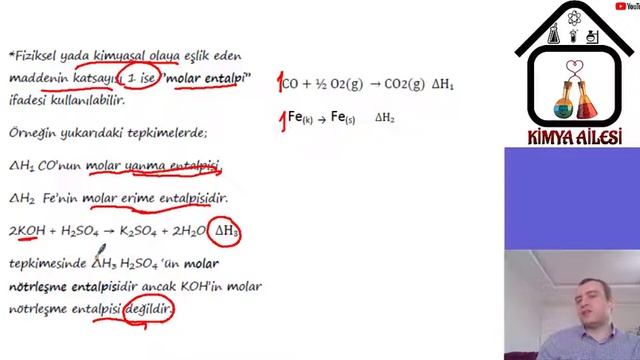 *Fiziksel yada kimyasal olaya eşlik eden
maddenin katsayısı 1 ise "molar entalpi"
ifadesi kullanılabilir.
Örneğin yukarıdaki tepkimelerde;
ΔH₁ CO'nun molar yanma entalpisi,
ΔH₂ Fe'nin molar erime entalpisidir.
2KOH + H₂SO₄ → K₂SO₄ + 2H₂O ΔH₃
tepkimesinde ΔH₃ H₂SO₄ 'ün molar
nötrleşme entalpisidir ancak KOH'in molar
nötrleşme entalpisi değildir.
1CO + ½ O₂(g) → CO₂(g) ΔH₁
1Fe(k) → Fe(s) ΔH₂
YouTu
KİMYA AİLESİ